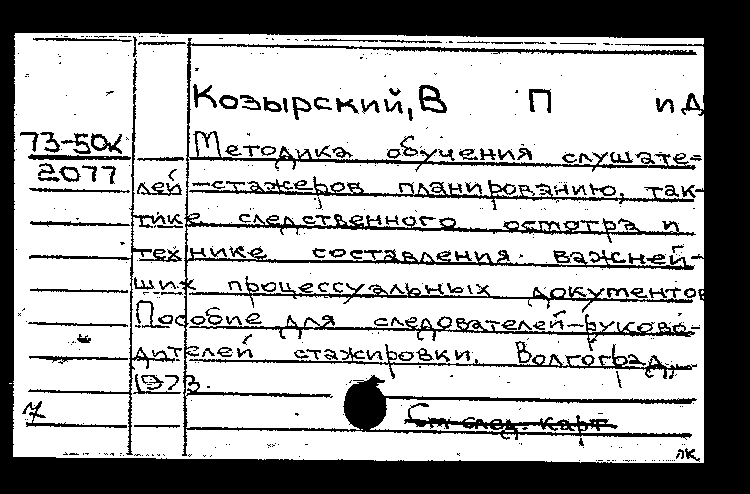 Козырский, В П и д
73-50к
Методика обучения слушате=
2077
лей-стажеров планированию, так-
тике следственного осмотра и
технике составления важней-
ших процессуальных документов
Пособие для следователей-руково-
дителей стажировки. Волгоград,
1973.
См след. карт
лк